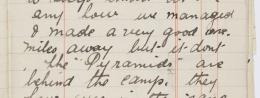 any how we managed
I made a very good one.
miles away but it dont
, the "Pyramids" are
behind the camp, they